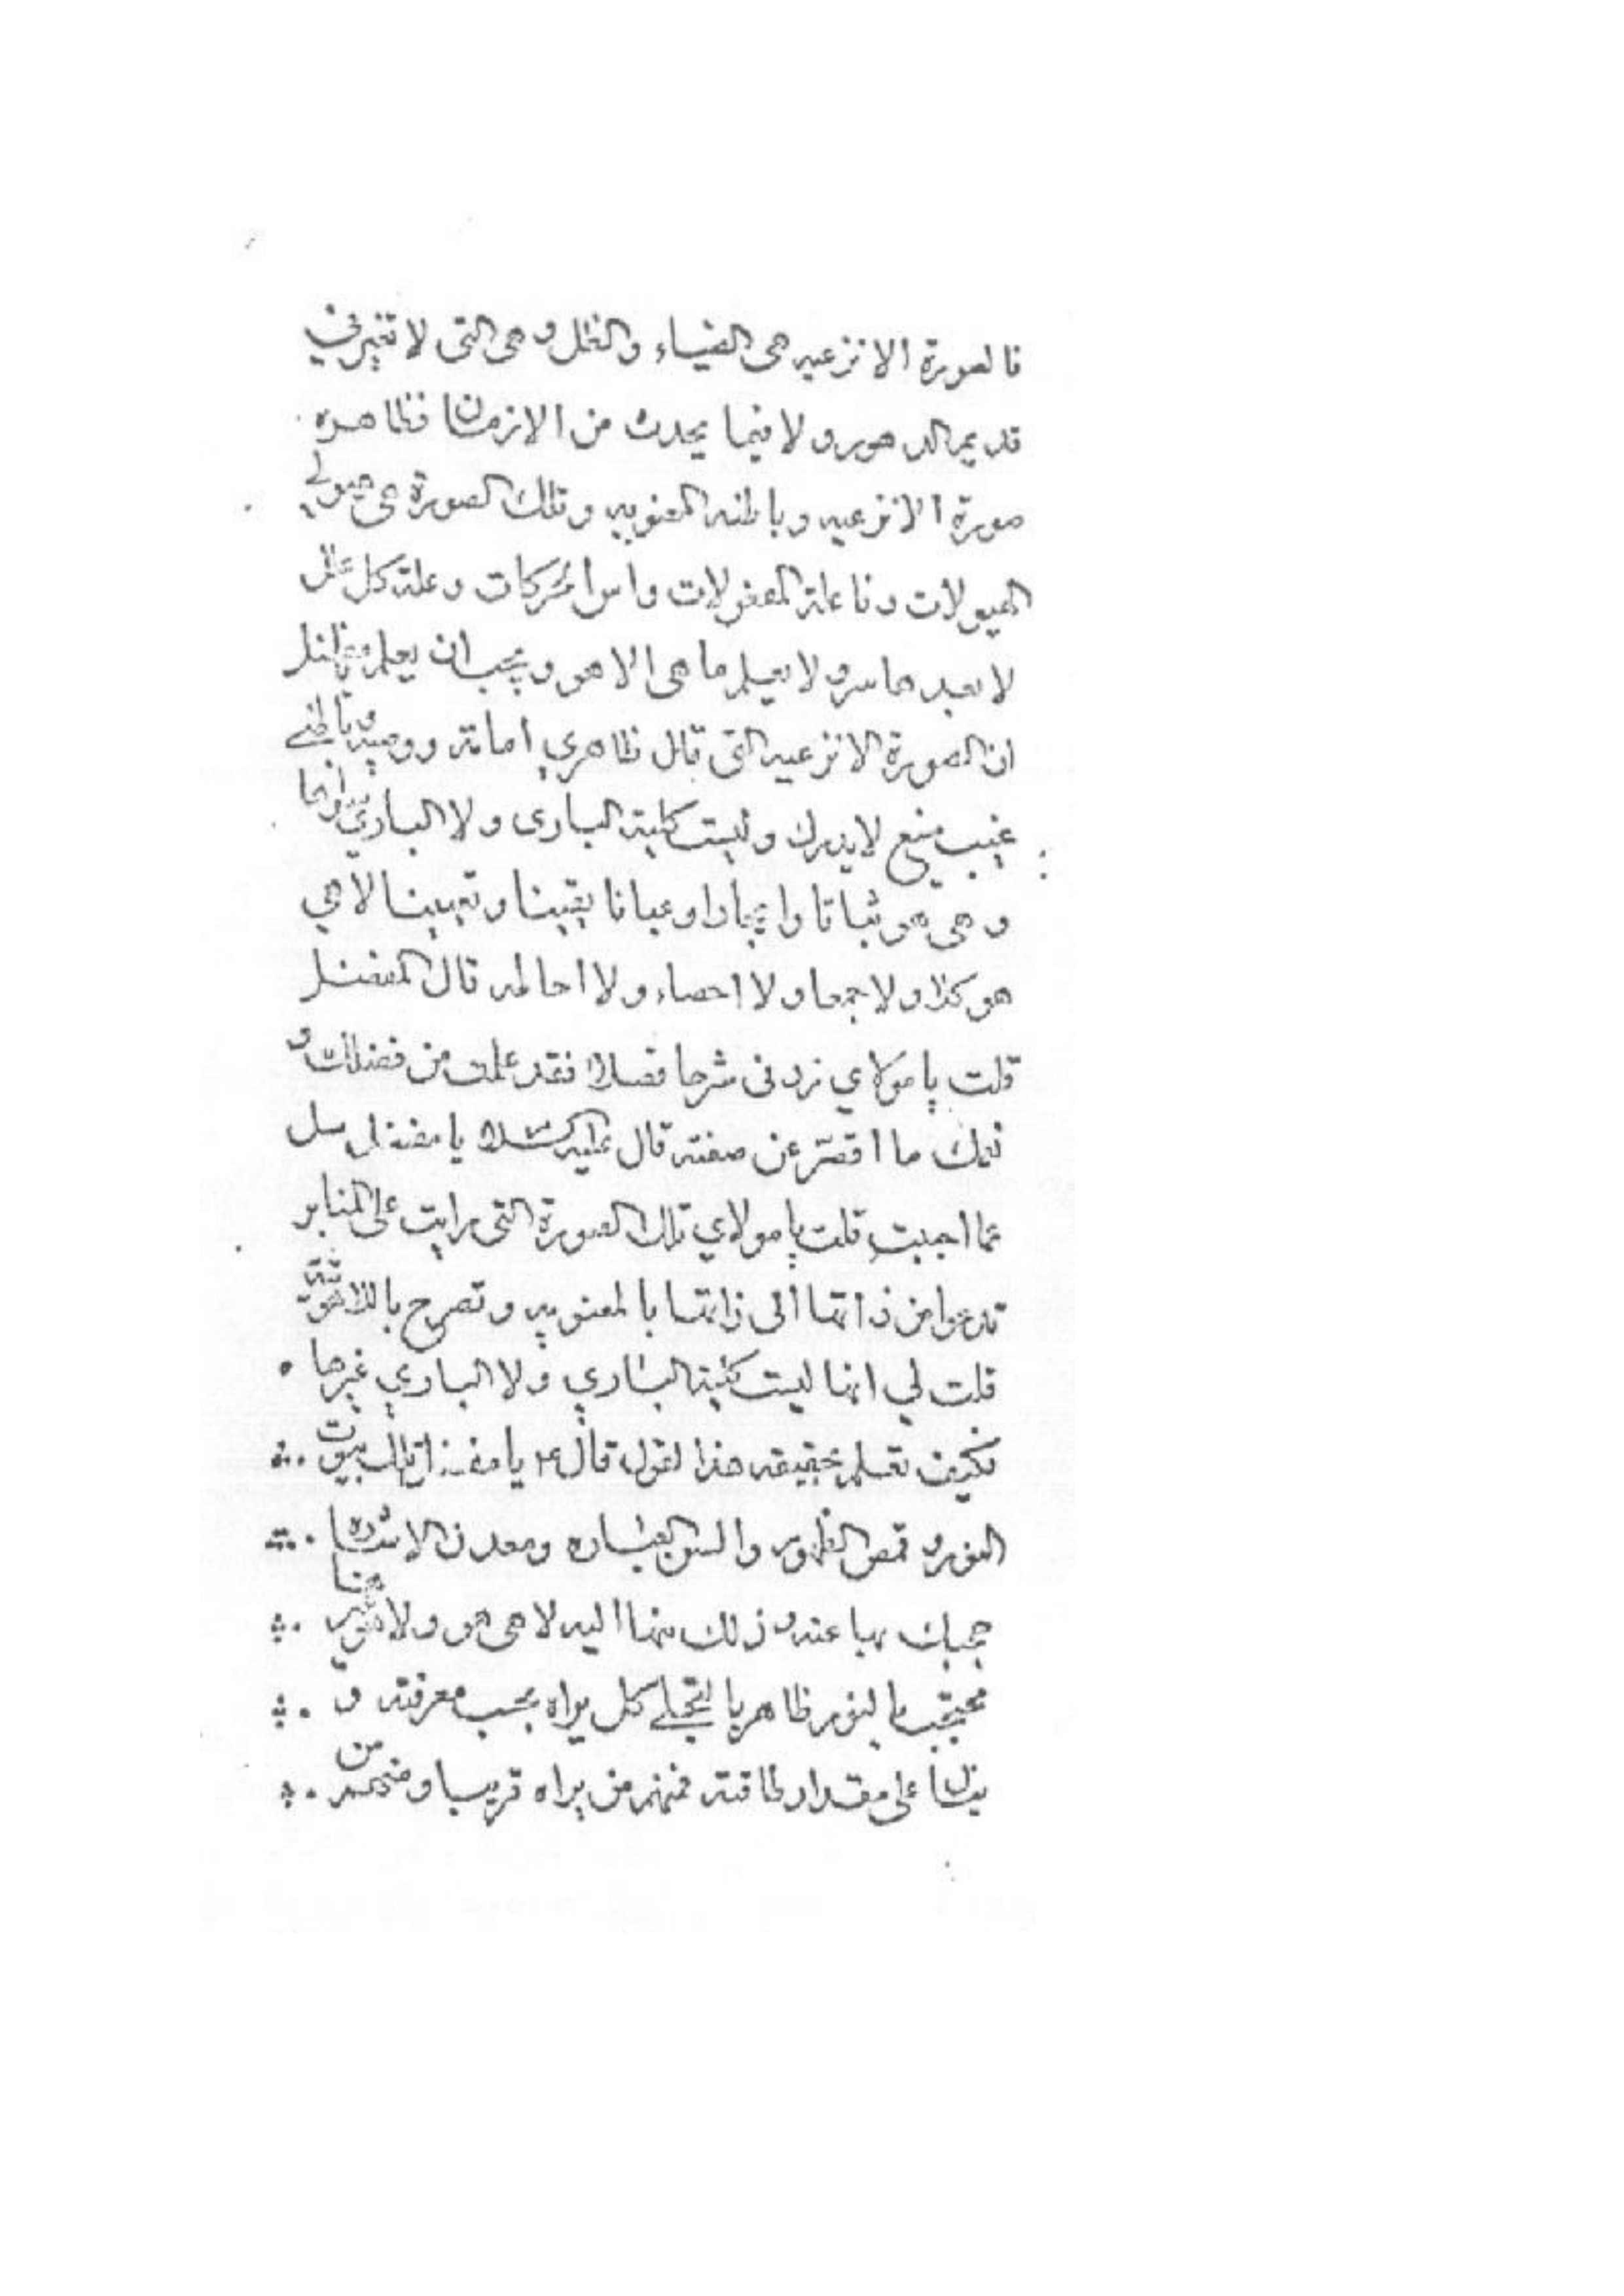 فالصورة الانزعيه هى الضياء والظل وهى التى لا تغير في
قديم الدهور ولا فيما يحدث من الازمان فظاهره
صورة الانزعيه وباطنه المعنويه وتلك الصورة هى هيولي
الهيولات وفاعلة المفعولات واس الحركات وعلة كل علل
لا بعدها سر ولا يعلم ما هى الا هو ويجب ان يعلم يا مفضل
ان الصورة الانزعيه التى قال ظاهري امامة ووصيه وباطنى
غيب منيع لا يدرك وليست كلية البارى ولا الباري سواها
وهى هو ثباتا وايجادا وعيانا يقينا وتعيينا لا هي
هو كلا ولا جمعا ولا احصاء ولا احاطه قال المفضل
قلت يا مولاي زدنى شرحا فقد علمت من فضلك و
نعمك ما اقصر عن صفته قال عليه السلام يا مفضل سل
عما احببت قلت يا مولاي تلك الصورة التى رايت على المنابر
تدعوا من ذاتها الى ذاتها بالمعنويه وتصرح باللاهوتية
قلت لي انها ليست كلية الباري ولا الباري غيرها
فكيف تعلم بحقيقه هذا القول قال ع يا مفضل تلك بيوت
النور وقمص الظهور والسن العباره ومعدن الاشاره
حجبك بها عنه ودلك منها اليه لا هى هو ولا هو غيرها
محتجب بالنور ظاهر بالتجلي كل يراه بحسب معرفته و
ينال على مقدار طاقته فمنهم من يراه قريبا ومنهم من